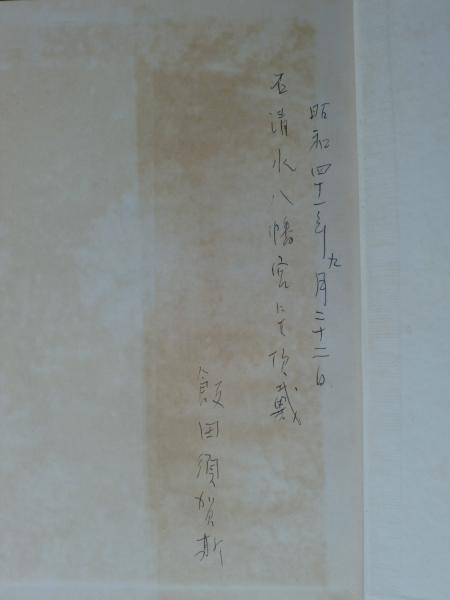 昭和四十一年九月二十二日
石清水八幡宮にて頂戴
飯田須賀斯